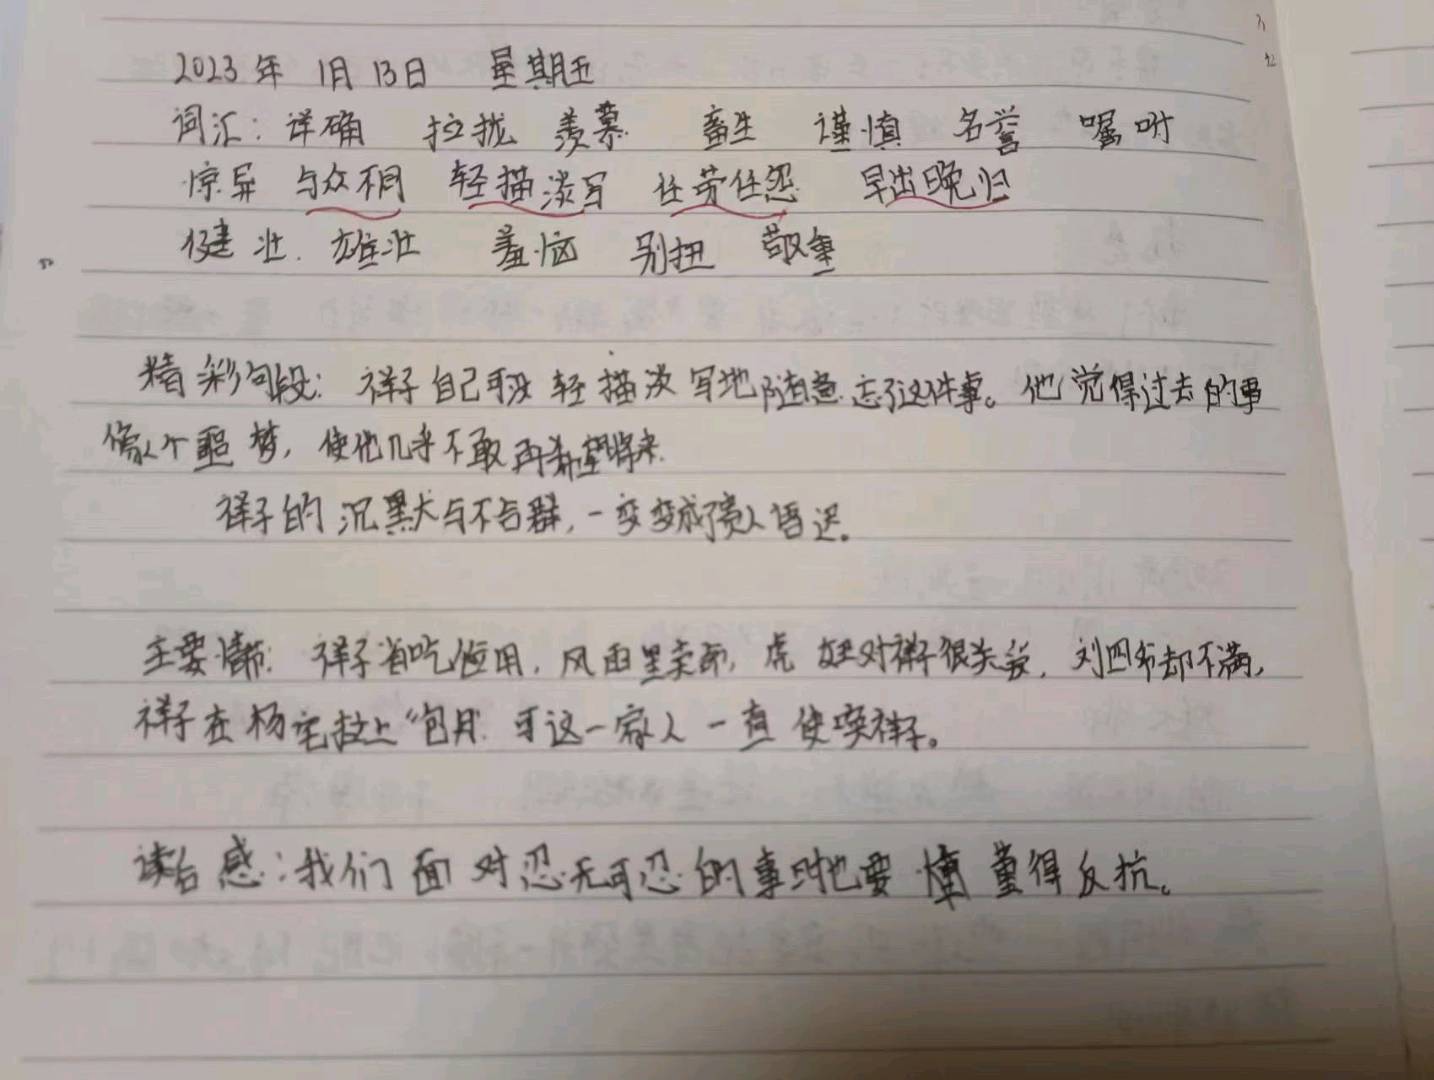 2023年 1月13日 星期五
词汇：详确 拉拢 羡慕 畜生 谨慎 名誉 嘱咐
惊异 与众不同 轻描淡写 任劳任怨 早出晚归
健壮. 雄壮 羞恼 别扭 敬重
精彩句段：祥子自己可没轻描淡写地随意忘了这件事。他觉得过去的事
像个噩梦，使他几乎不敢再希望将来.
祥子的沉默与不合群，一变变成了贫人语迟。
主要情节：祥子省吃俭用，风雨里卖命，虎妞对祥子很关爱，刘四爷却不满，
祥子在杨宅拉上“包月”可这一家人一直使唤祥子。
读后感：我们面对忍无可忍的事时也要懂得反抗。